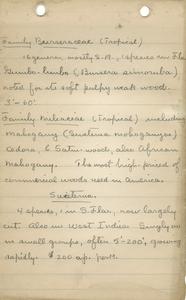 Family Burseraceae (Tropical)
16 genera, mostly S. A., 1 species in Fla.
Gumbo-limbo (Bursera simaruba)
noted for its soft pulpy weak wood.
3'-60'.
Family Meliaceae (Tropical) including
Mahogany (Swietenia mahogoni)
Cedora, & Satin wood, also African
Mahogany. The most high-priced of
commercial woods used in America.
Swietenia.
4 species, 1 in S. Fla., now largely
cut. Also in West Indies. Singly or
in small groups, often 5'-200', growing
rapidly. $200 a